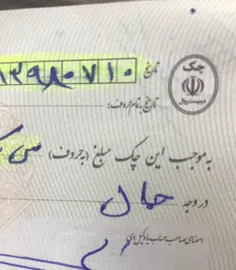 چک
تاریخ ۱۳۹۸۰۷۱۰
تاریخ به تمام حروف:
به موجب این چک مبلغ (به حروف) سی
در وجه حامل
امضای صاحب حساب یا وکیل وی